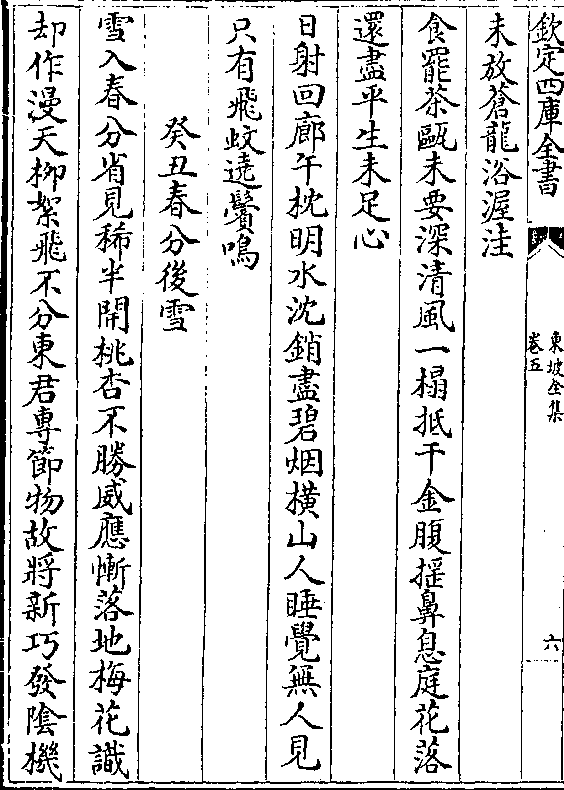 欽定四庫全書
東坡全集
卷五
六
未放蒼龍浴渥洼
食罷茶甌未要深清風一榻抵千金腹揺鼻息庭花落
還盡平生未足心
日射回廊午枕明水沈銷盡碧烟横山人睡覺無人見
只有飛蚊遶鬢鳴
癸丑春分後雪
雪入春分省見稀半開桃杏不勝威應慚落地梅花識
却作漫天柳絮飛不分東君專節物故將新巧發陰機